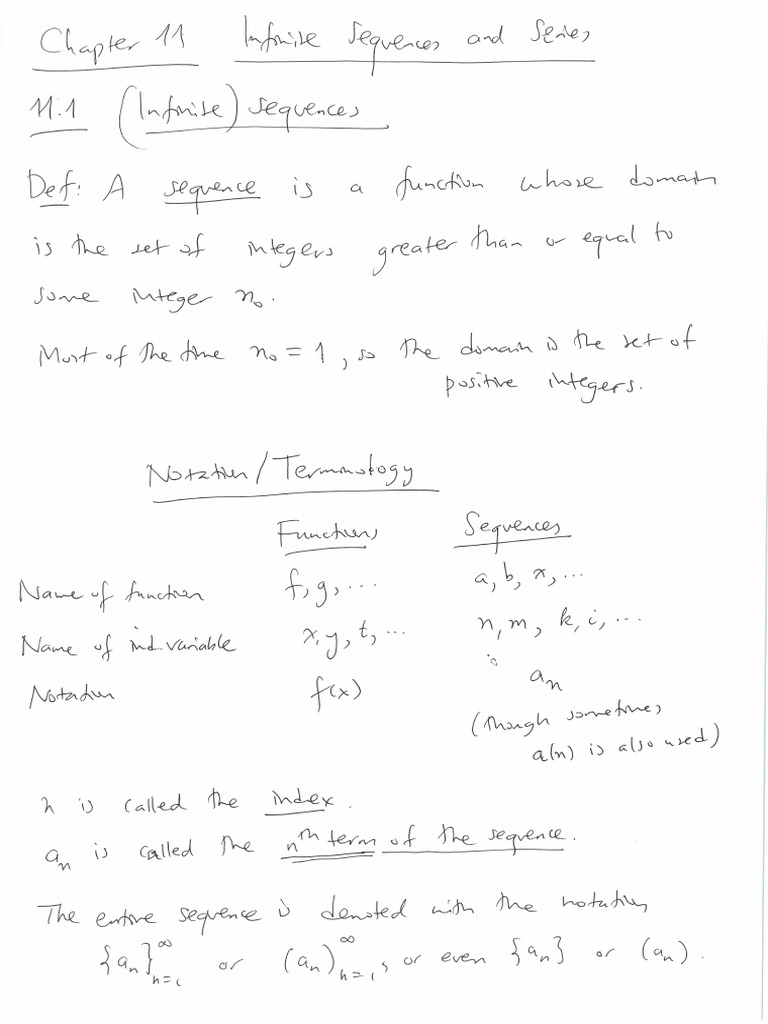 Chapter 11 Infinite Sequences and Series
11.1 (Infinite) Sequences
Def: A sequence is a function whose domain
is the set of integers greater than or equal to
some integer n₀.
Most of the time n₀ = 1, so the domain is the set of
positive integers.
Notation/Terminology
Functions Sequences
Name of function f, g, ... a, b, x, ...
Name of ind. variable x, y, t, ... n, m, k, i, ...
Notation f(x) aₙ
(though sometimes
a(n) is also used)
n is called the index.
aₙ is called the nth term of the sequence.
The entire sequence is denoted with the notation
{aₙ}∞ₙ₌₁ or (aₙ)∞ₙ₌₁, or even {aₙ} or (aₙ).